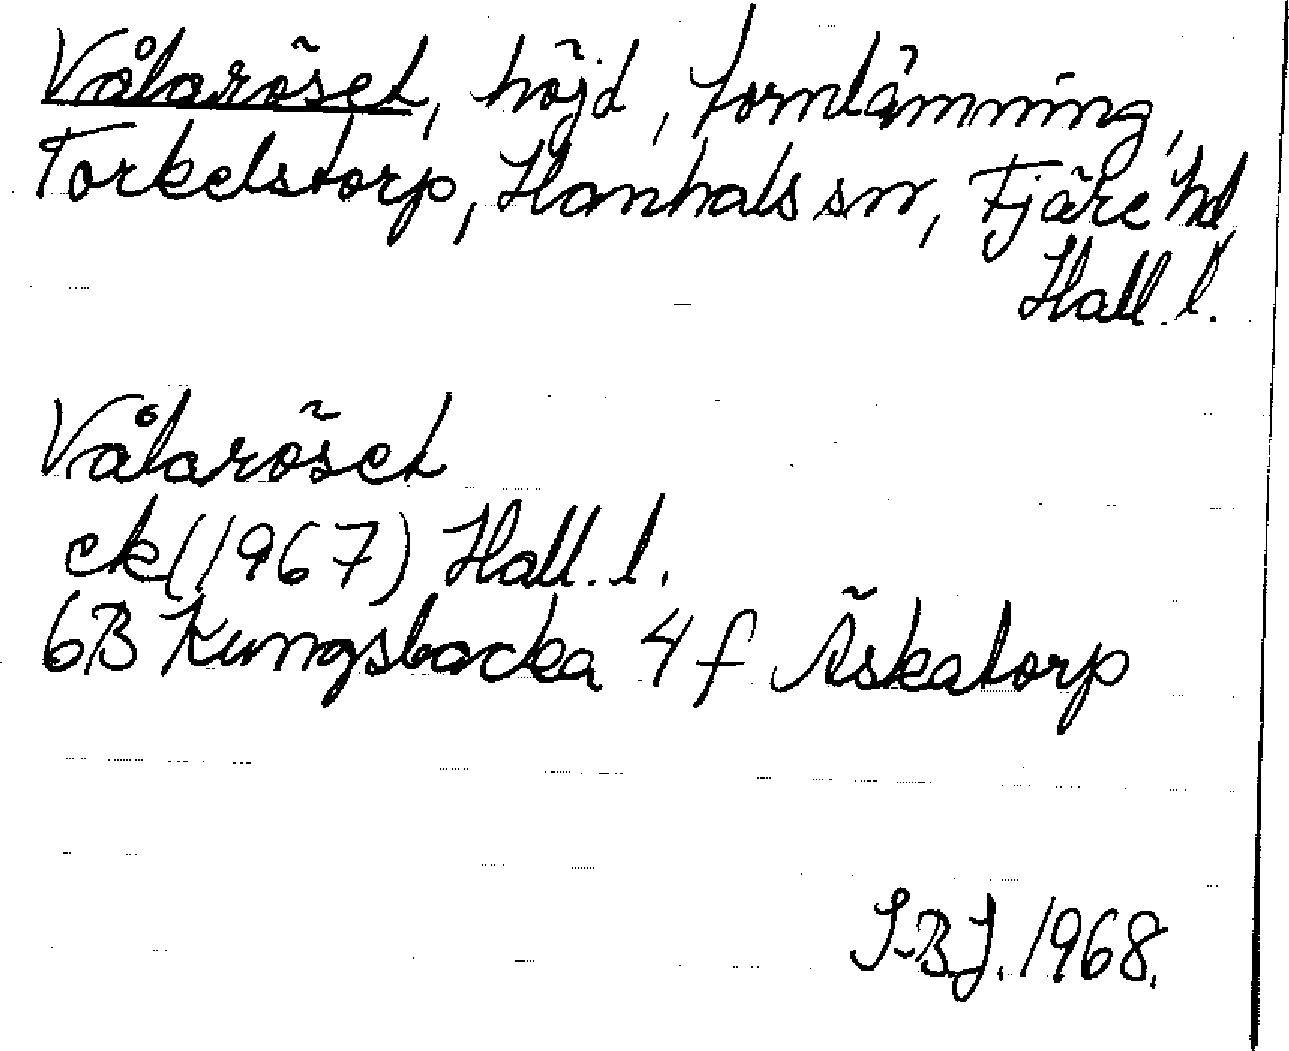 Vålaröset, höjd, fornlämning,
Torkelstorp, Hanhals sn, Fjäre hd,
Hall. l.
Vålaröset
ek(1967) Hall. l.
6B Kungsbacka 4f Äskatorp
I-B.J. 1968.